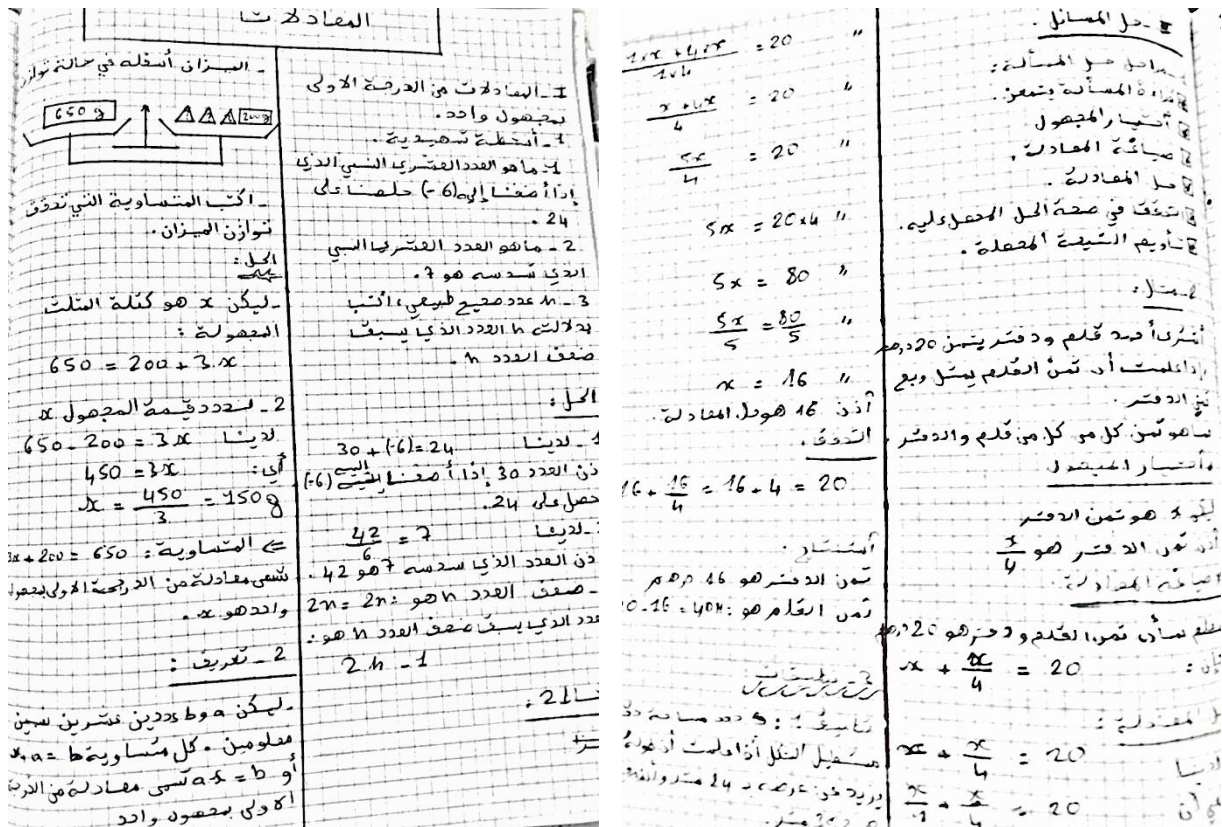 المعادلات
I - المعادلات من الدرجة الاولى
بمجهول واحد.
1 - أنشطة تمهيدية.
1 - ما هو العدد العشري النسبي الذي
إذا أضفنا إليه (6-) حصلنا على
24.
2 - ماهو العدد العشري النسبي
الذي سدسه هو 7.
3 - n عدد صحيح طبيعي، اكتب
بدلالة n العدد الذي يسبق
ضعف العدد n.
الحل:
1 - لدينا 30 + (-6) = 24
ذن العدد 30 إذا أضفنا إليه (6-)
حصل على 24.
- لدينا 42/6 = 7
ذن العدد الذي سدسه 7 هو 42.
- ضعف العدد n هو: 2n = 2n
عدد الذي يسبق ضعف العدد n هو:
2n - 1
- الميزان أسفله في حالة توازن
650 g 200g
- اكتب المتساوية التي تحقق
توازن الميزان.
الحل:
- ليكن x هو كتلة المثلث
المجهولة:
650 = 200 + 3x
2 - لنحدد قيمة المجهول x
لدينا 650 - 200 = 3x
أي: 450 = 3x
x = 450/3 = 150g
⇐ المتساوية: 3x + 200 = 650
تسمى معادلة من الدرجة الاولى بمجهول
واحد هو x.
2 - تعريف:
- ليكن a و b عددين عشريين نسبيين
معلومين. كل متساوية x+a = b
أو ax = b تسمى معادلة من الدرجة
الاولى بمجهول واحد
II - حل المسائل.
مراحل حل المسألة:
قراءة المسألة بتمعن.
اختيار المجهول
صياغة المعادلة.
حل المعادلة.
التحقق في صحة الحل المحصل عليه.
تأويل النتيجة المحصلة.
2 - مثال:
اشترى أحمد قلم ودفتر بثمن 20 درهم
إذا علمت أن ثمن القلم يمثل ربع
ثمن الدفتر.
ماهو ثمن كل من كل من قلم والدفتر.
اختيار المجهول
ليكن x هو ثمن الدفتر
أذن ثمن الدفتر هو x/4
صياغة المعادلة:
نعلم بأن ثمن القلم و دفتر هو 20 درهم
فإن: x + x/4 = 20
حل المعادلة:
لدينا x + x/4 = 20
أي أن x/1 + x/4 = 20
" (1×x + 4×x)/(1×4) = 20
" (x + 4x)/4 = 20
" 5x/4 = 20
" 5x = 20×4
" 5x = 80
" 5x/5 = 80/5
" x = 16
أذن 16 هو حل المعادلة.
التحقق.
16 + 16/4 = 16 + 4 = 20
استنتاج.
ثمن الدفتر هو 16 درهم
ثمن القلم هو: 20-16 = 4DH
3 - تطبيقات
مستطيل الشكل أذا علمت أن طوله
يزيد عن عرضه بـ 24 متر